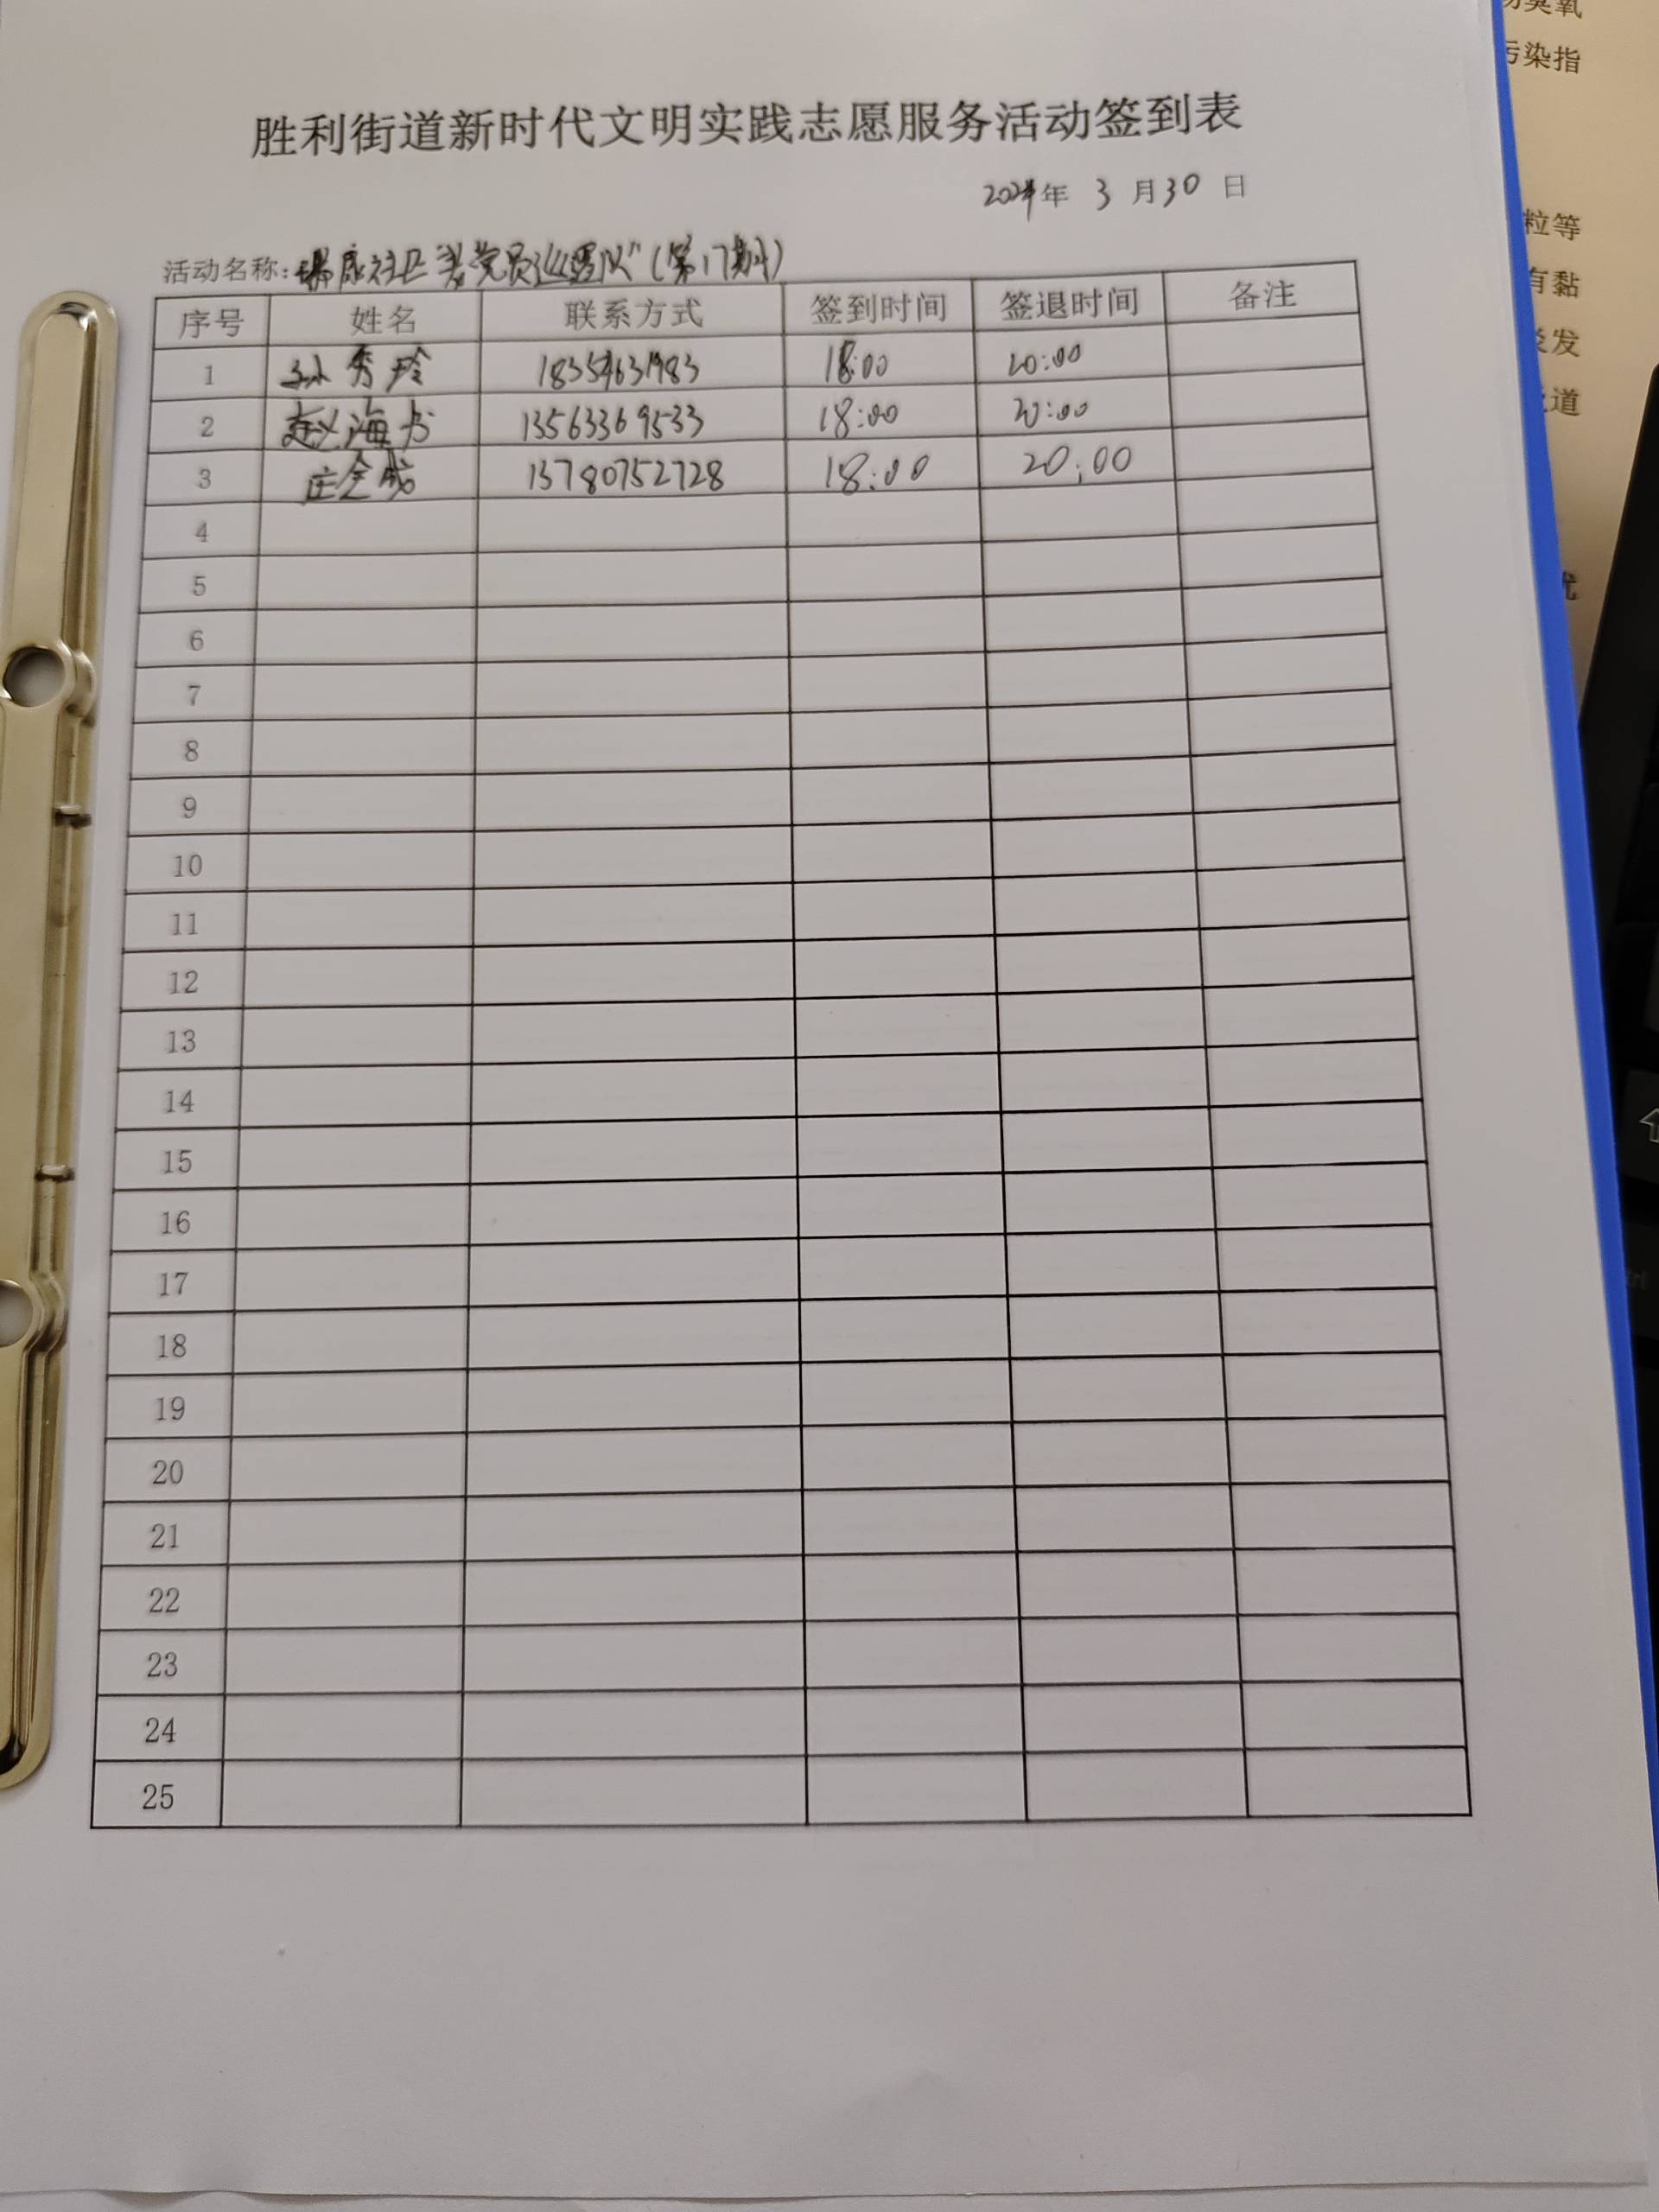 胜利街道新时代文明实践志愿服务活动签到表
2024年 3 月 30 日
活动名称:瑞康社区"老党员巡逻队"(第17期)
序号 姓名 联系方式 签到时间 签退时间 备注
1 孙秀玲 18:00 20:00
2 赵海书 13563369533 18:00 20:00
3 庄全成 13780752728 18:00 20:00
4
5
6
7
8
9
10
11
12
13
14
15
16
17
18
19
20
21
22
23
24
25
臭氧
污染指
粒等
有黏
发
道